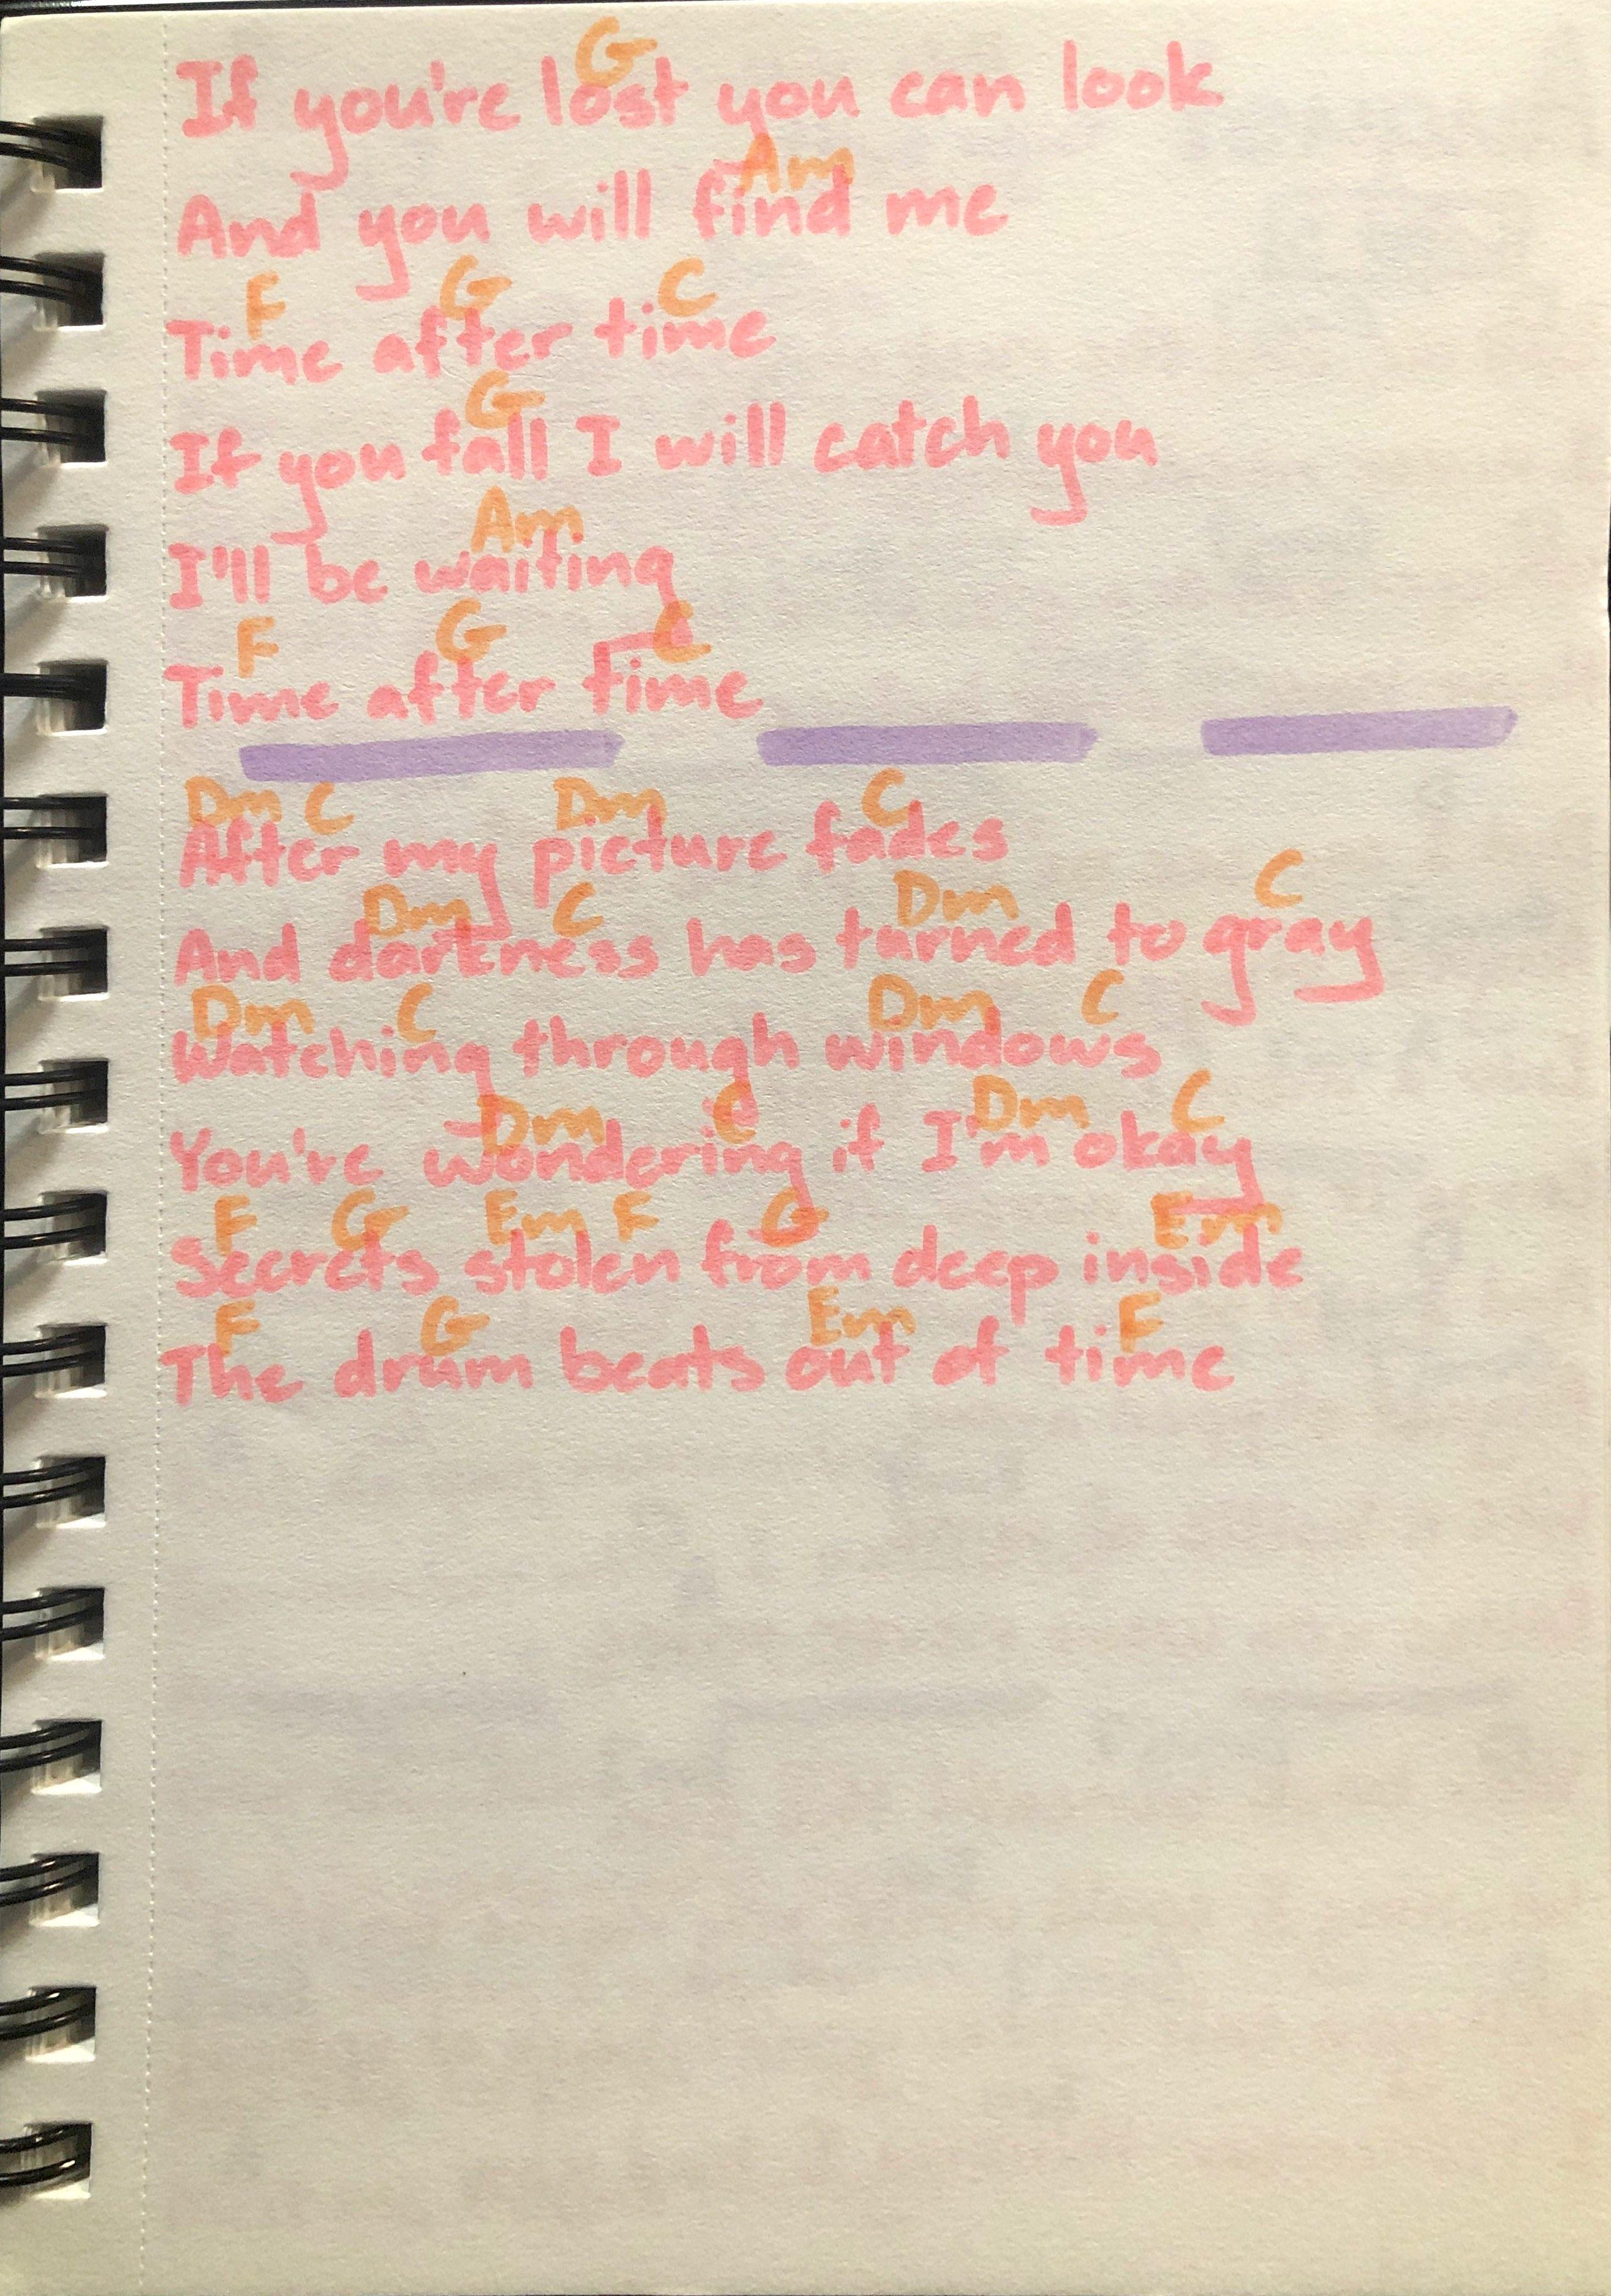 G
If you're lost you can look
Am
And you will find me
F G C
Time after time
G
If you fall I will catch you
Am
I'll be waiting
F G C
Time after time
Dm C Dm C
After my picture fades
Dm C Dm C
And darkness has turned to gray
Dm C Dm C
Watching through windows
Dm C Dm C
You're wondering if I'm okay
F G Em F G Em
Secrets stolen from deep inside
F G Em F
The drum beats out of time